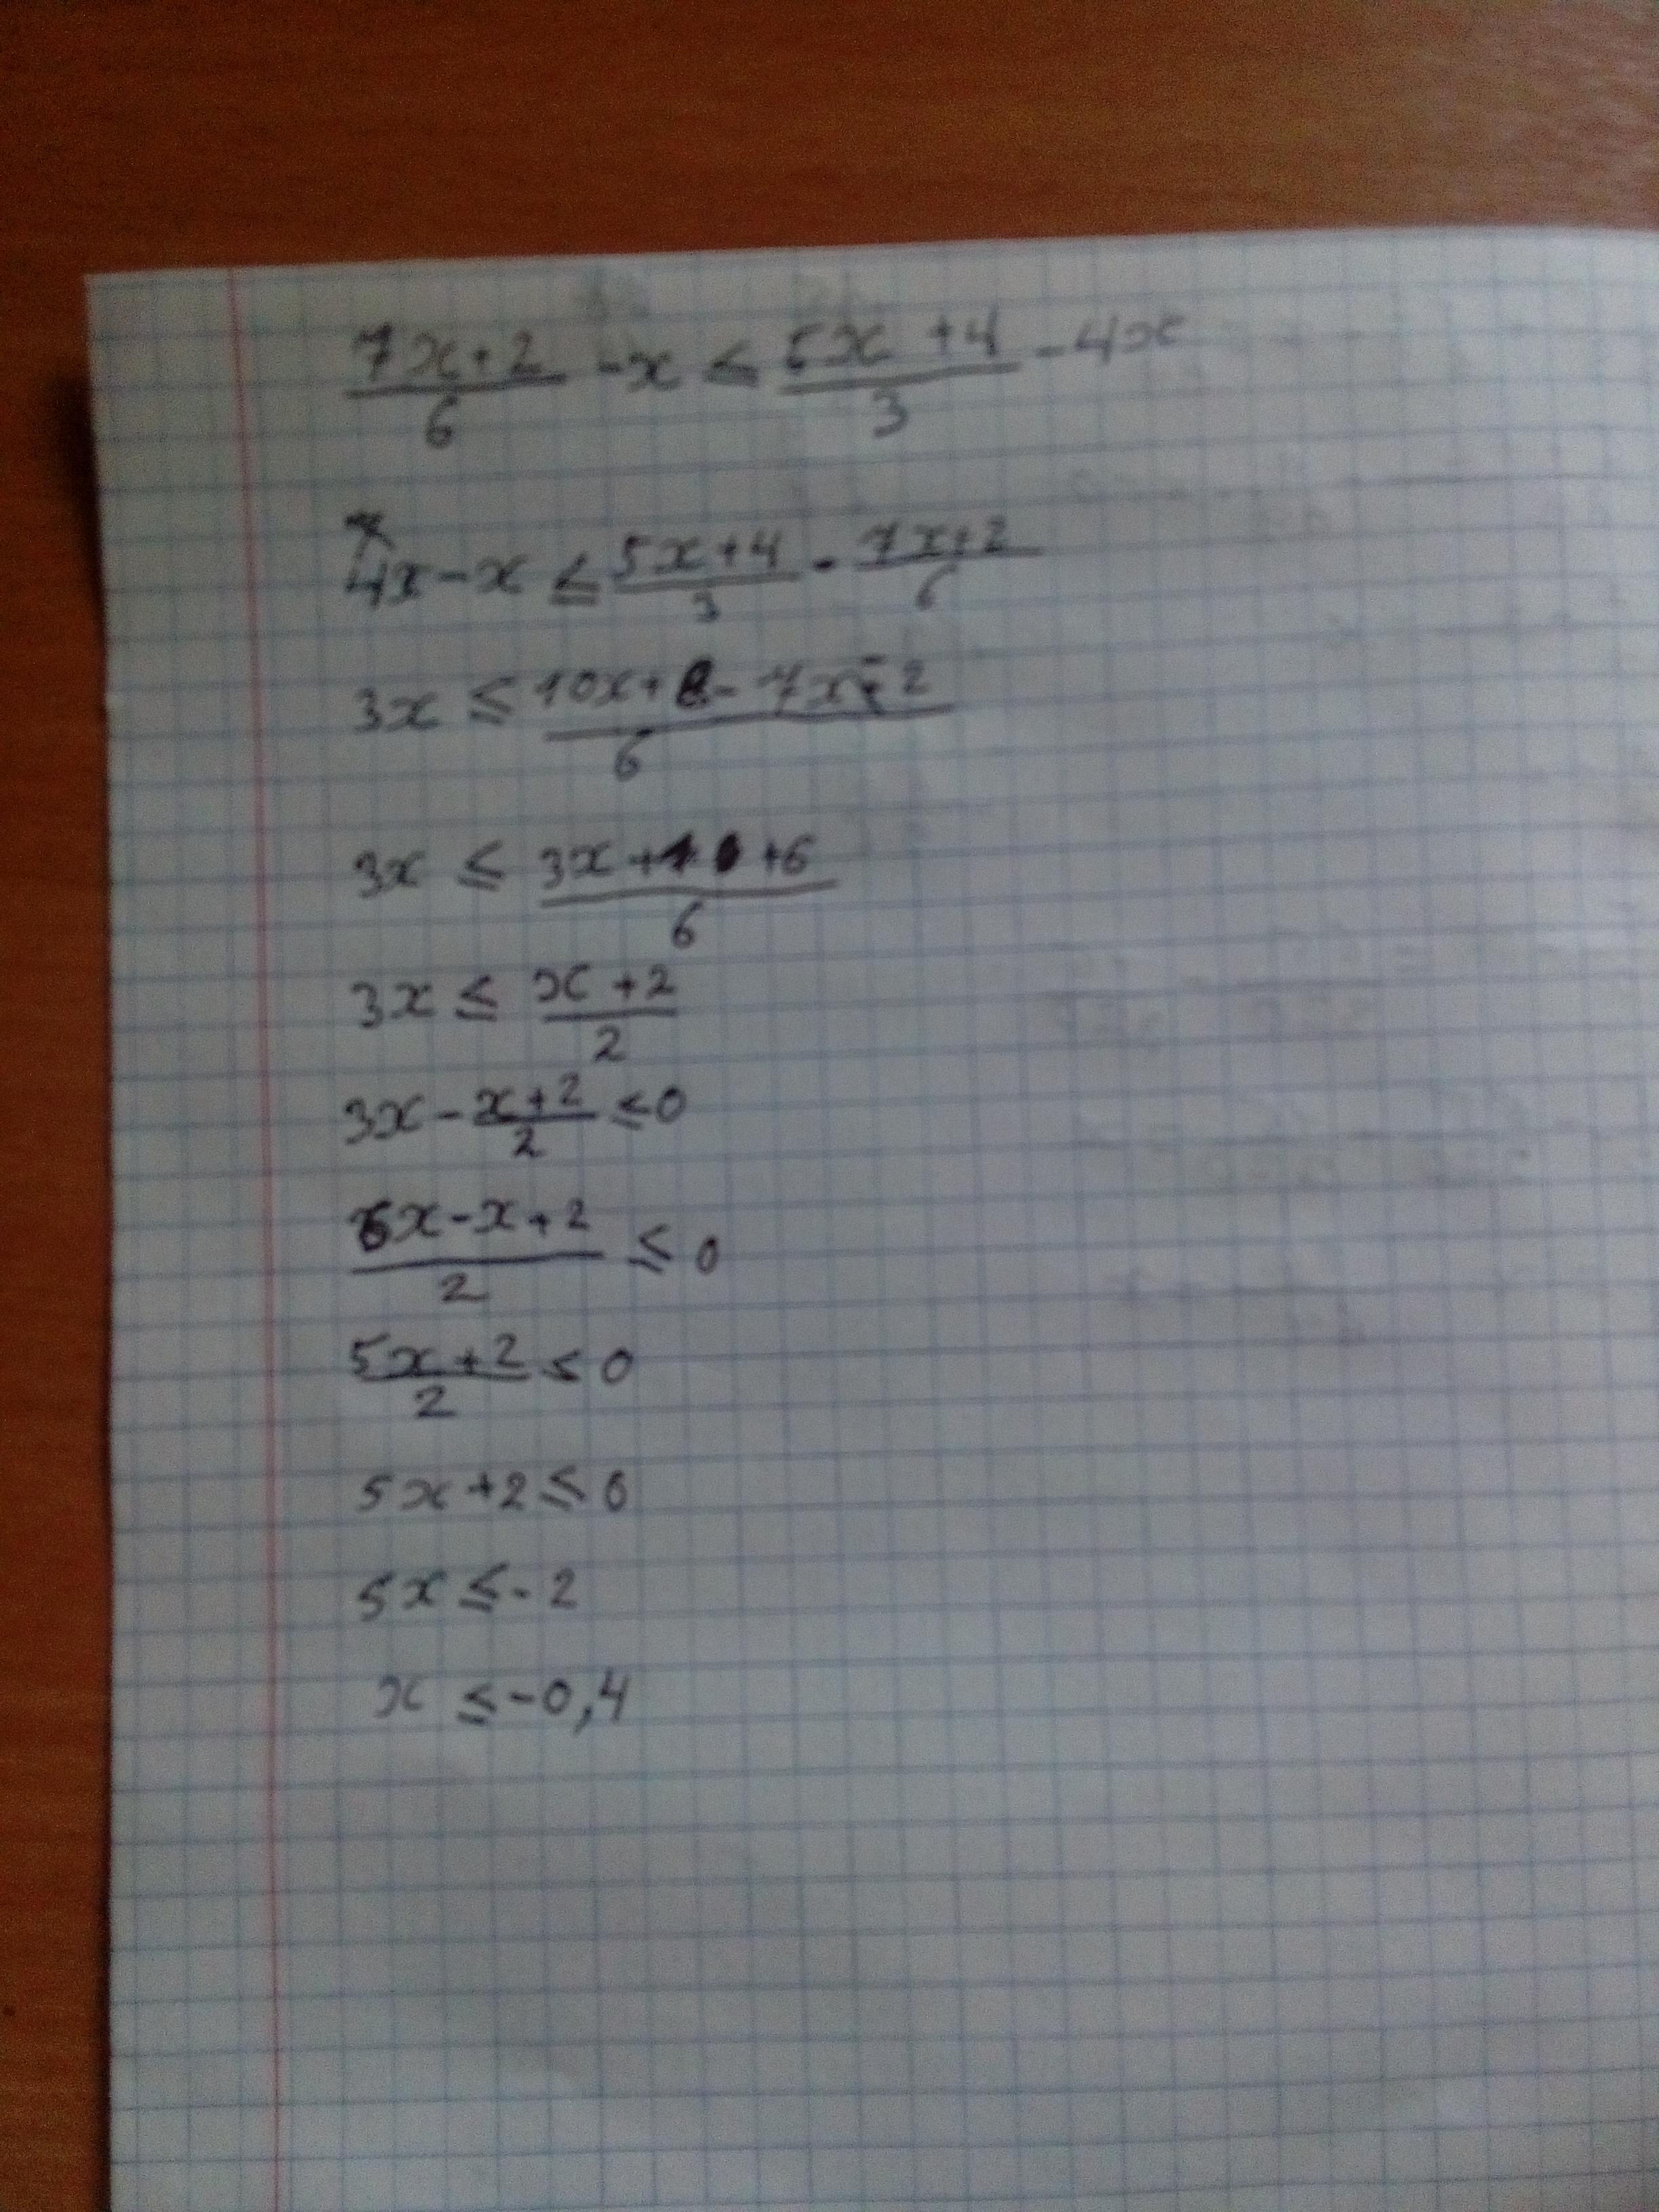 (7x+2)/6 - x ≤ (5x+4)/3 - 4x
4x - x ≤ (5x+4)/3 - (7x+2)/6
3x ≤ (10x+8-7x-2)/6
3x ≤ (3x+6)/6
3x ≤ (x+2)/2
3x - (x+2)/2 ≤ 0
(6x-x+2)/2 ≤ 0
(5x+2)/2 ≤ 0
5x+2 ≤ 0
5x ≤ -2
x ≤ -0,4